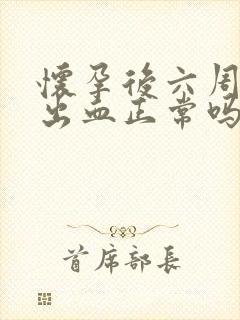 懷孕後六周
出血正常吗
首席部長